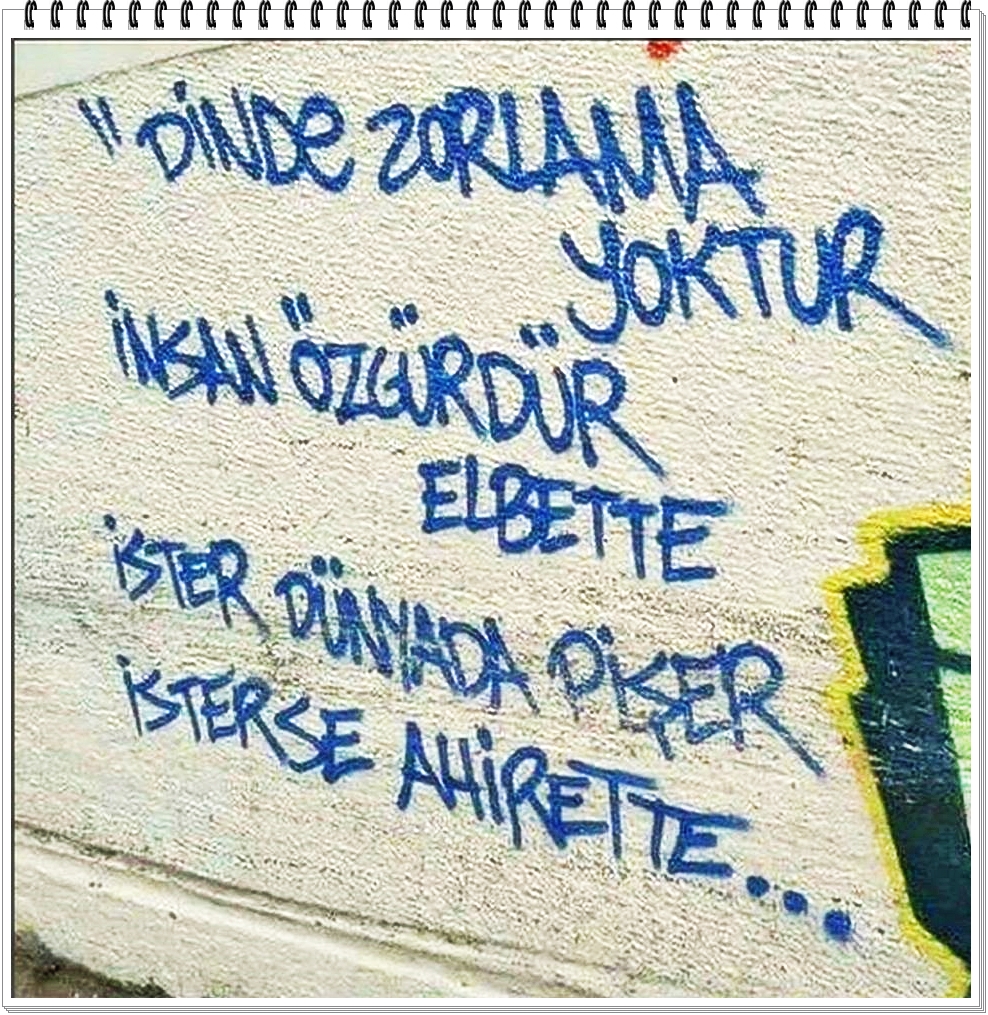 "DİNDE ZORLAMA
YOKTUR
İNSAN ÖZGÜRDÜR
ELBETTE
İSTER DÜNYADA PİŞER
İSTERSE AHİRETTE...